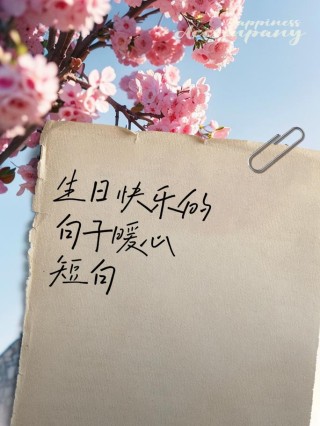 happiness
accompany
生日快乐的
句子暖心
短句